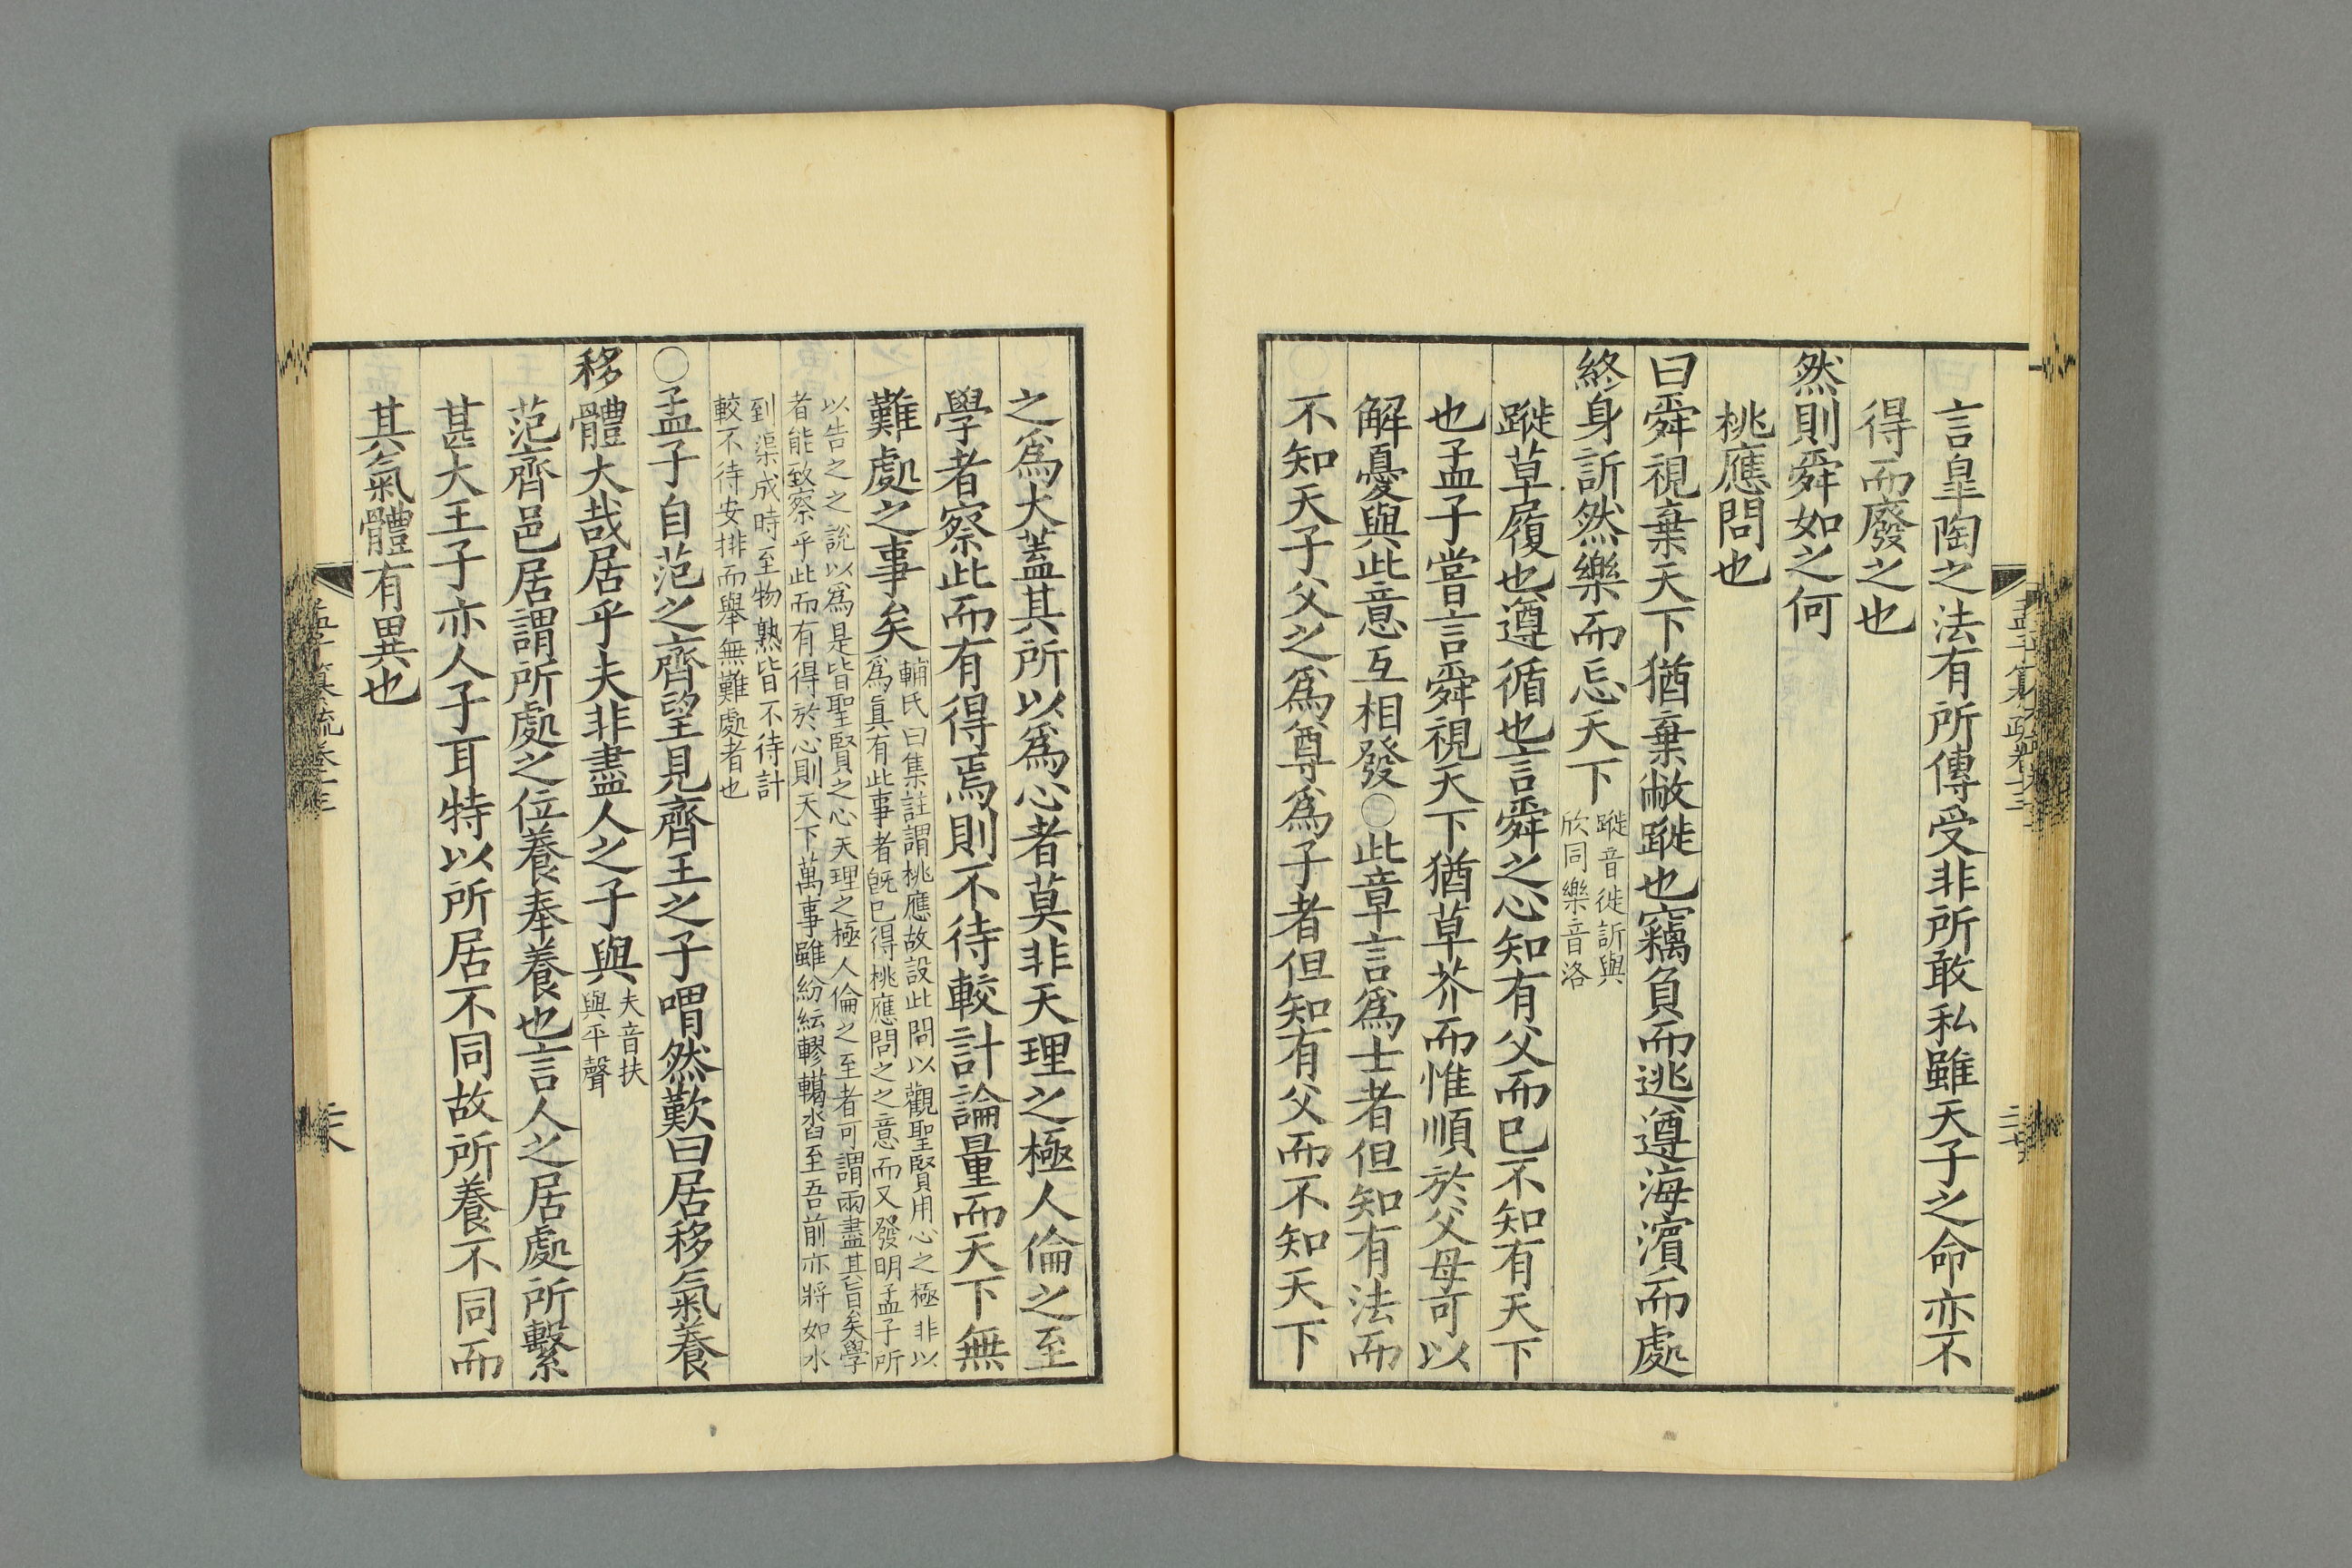 言皐陶之法有所傳受非所敢私雖天子之命亦不
得而廢之也
然則舜如之何
桃應問也
曰舜視棄天下猶棄敝蹝也竊負而逃遵海濱而處
終身訢然樂而忘天下
蹝音徙訢與
欣同樂音洛
蹝草履也遵循也言舜之心知有父而已不知有天下
也孟子嘗言舜視天下猶草芥而惟順於父母可以
解憂與此意互相發〇此章言爲士者但知有法而
不知天子父之爲尊爲子者但知有父而不知天下
之爲大蓋其所以爲心者莫非天理之極人倫之至
學者察此而有得焉則不待較計論量而天下無
難處之事矣
輔氏曰集註謂桃應故設此問以觀聖賢用心之極非以
爲眞有此事者旣已得桃應問之之意而又發明孟子所
以告之之說以爲是皆聖賢之心天理之極人倫之至者可謂兩盡其旨矣學
者能致察乎此而有得於心則天下萬事雖紛紜轇轕沓至吾前亦將如水
到渠成時至物熟皆不待計
較不待安排而舉無難處者也
〇孟子自范之齊望見齊王之子喟然歎曰居移氣養
移體大哉居乎夫非盡人之子與
夫音扶
與平聲
范齊邑居謂所處之位養奉養也言人之居處所繫
甚大王子亦人子耳特以所居不同故所養不同而
其氣體有異也
孟子纂疏卷十三